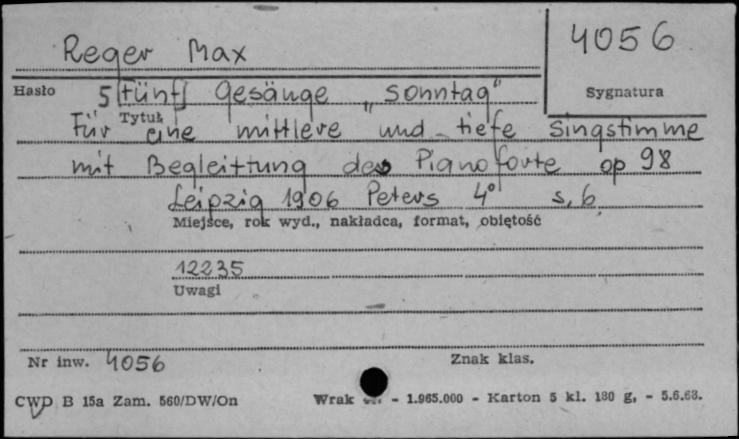 Reger Max
4056
Hasło 5 [fünf] Gesänge „Sonntag"
Sygnatura
Tytuł
Für eine mittlere und tiefe Singstimme
mit Begleittung des Pianoforte op 98
Leipzig 1906 Peters 4° s. 6
Miejsce, rok wyd., nakładca, format, objętość
12235
Uwagi
Nr inw. 4056 Znak klas.
CWD B 15a Zam. 560/DW/On Wrak - 1.965.000 - Karton 5 kl. 180 g, - 5.6.68.